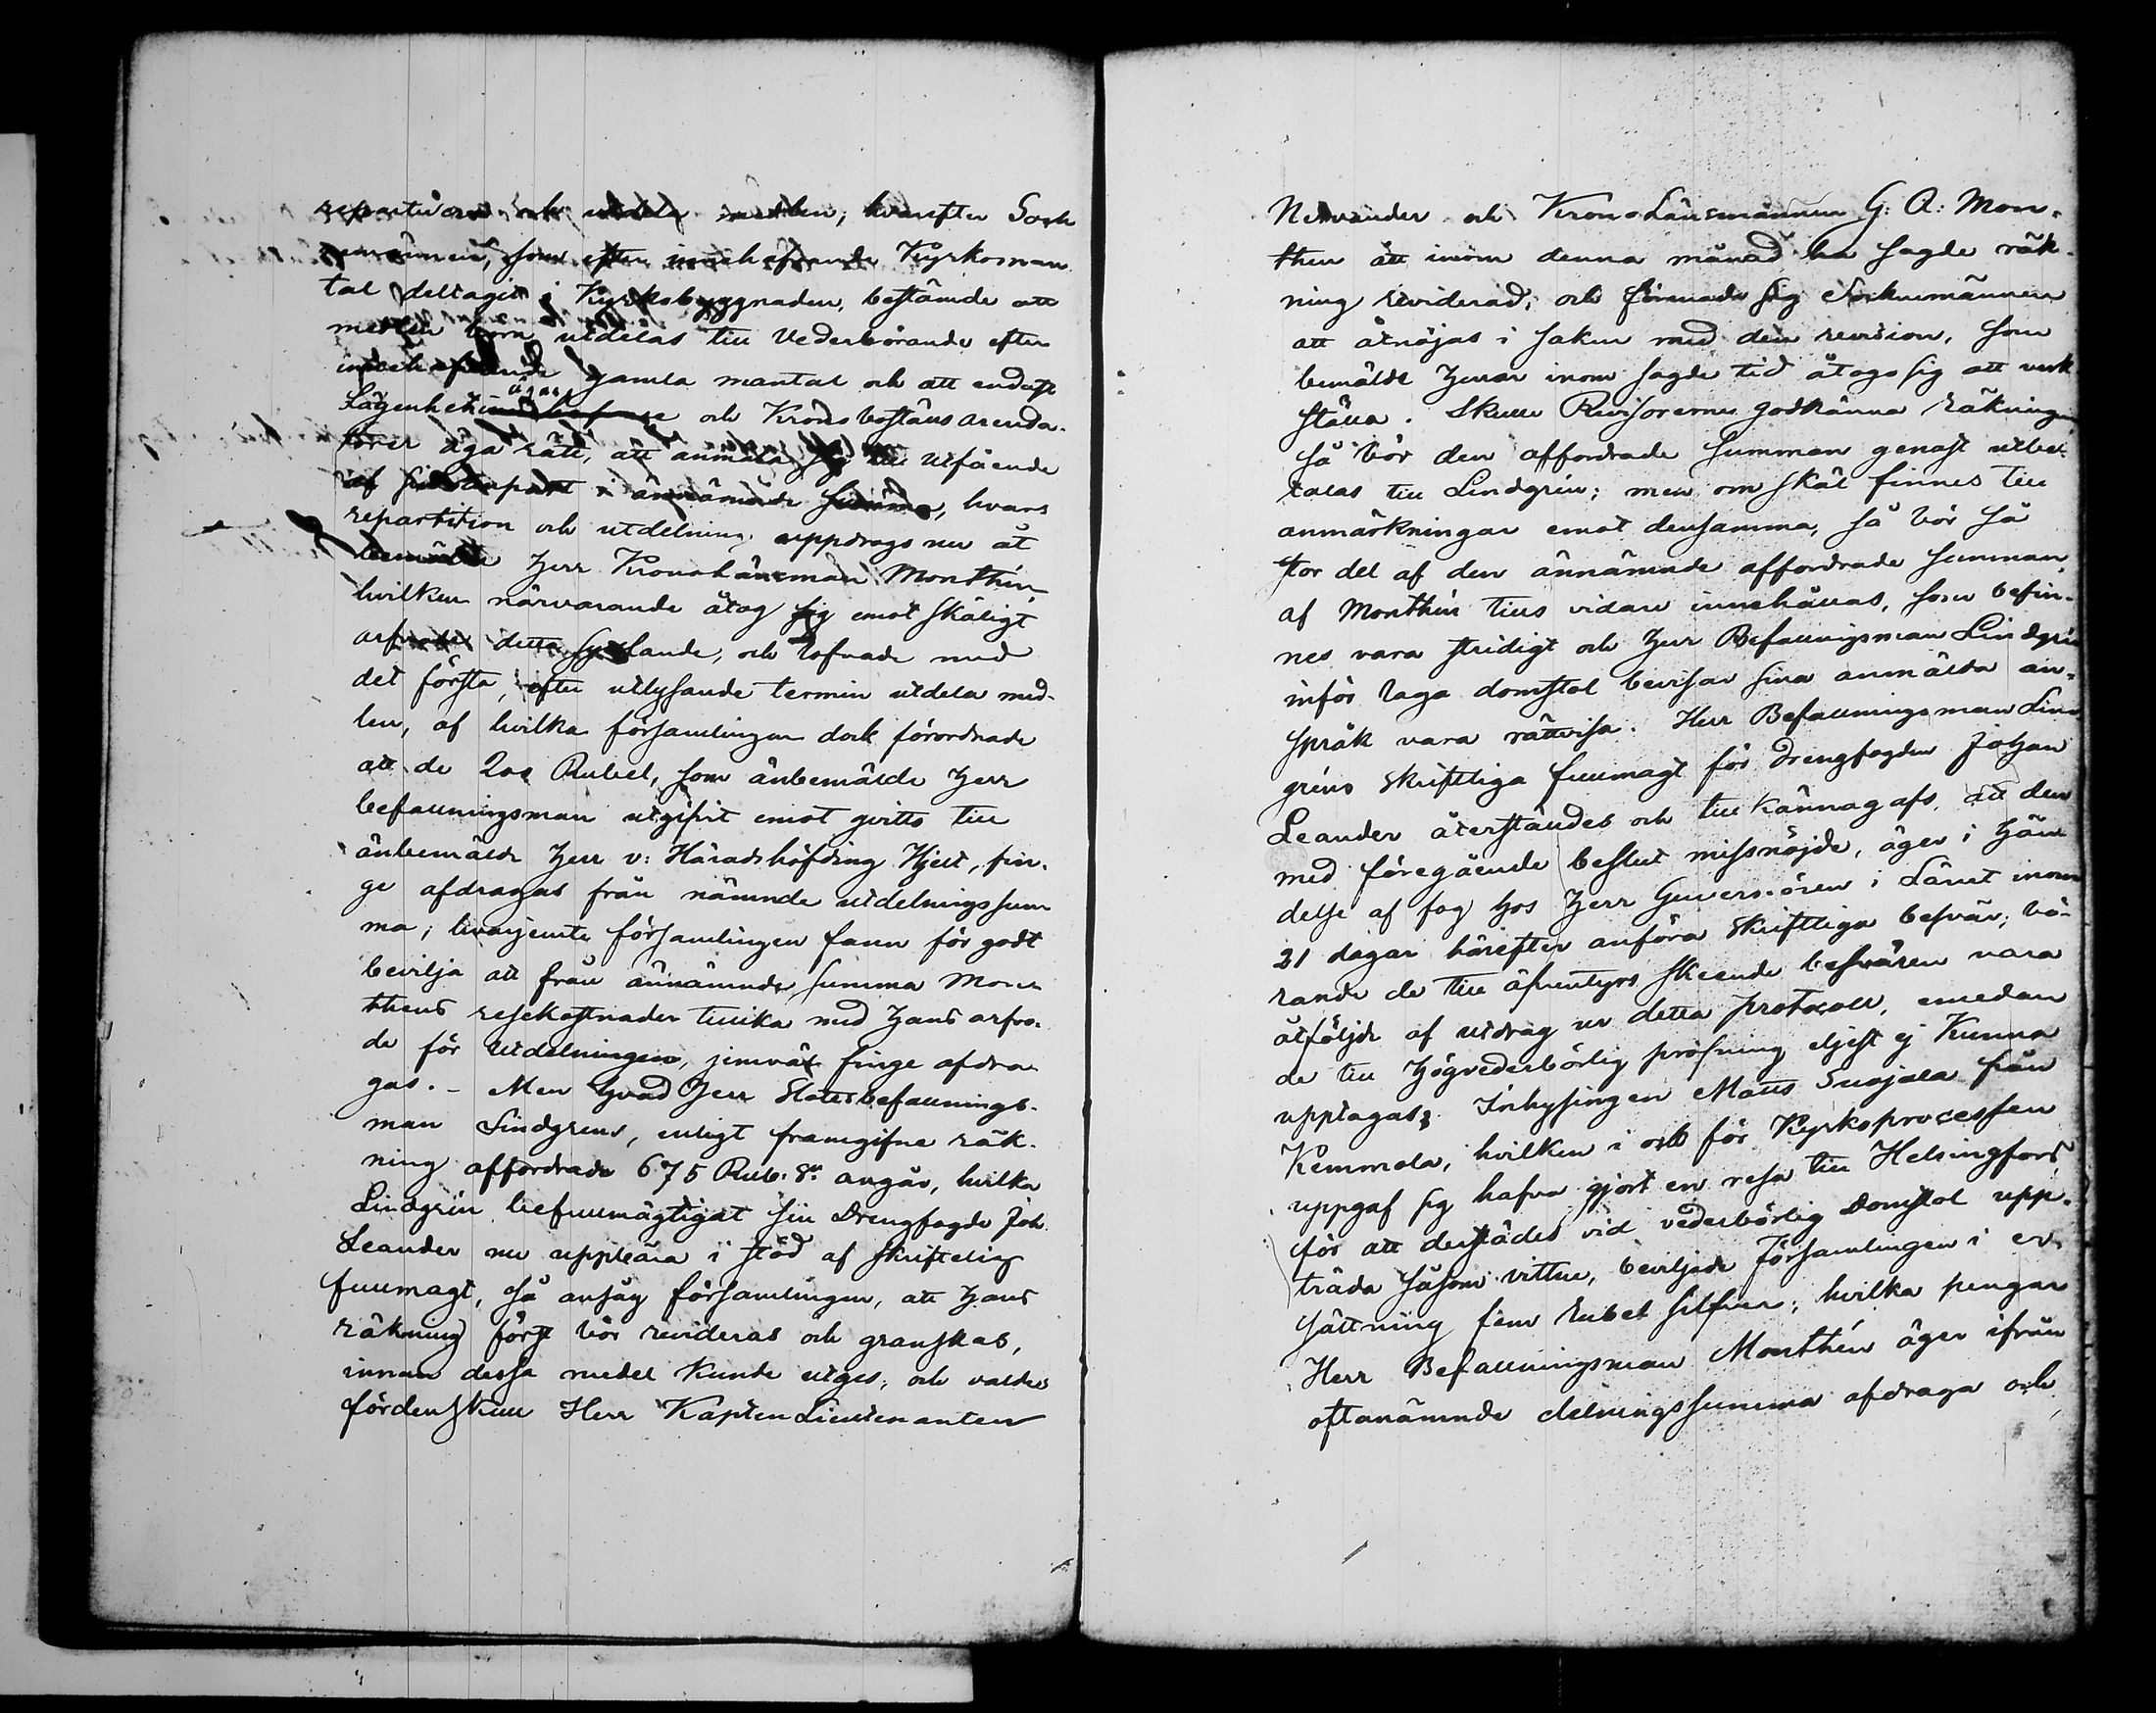 repartiera och utdela medlen; hvarefter Sock
nemännen, som efter innehafvande Kyrkoman
tal deltagit i Kyrkobyggnaden, bestämde att
medlen böra utdelas till Vederbörande efter
innehafvande gamla mantal och att endast
Lägenheters ägar och Kronobostäns arenda-
torer äga rätt, att anmäla sig till utfående
af sin anpart i ännämnde summa, hvars
repartition och utdelning uppdrogs nu åt
bemälte Herr Kronolänsman Monthén,
hvilken närvarande åtog sig emot skäligt
arfvode detta sysslande, och lofvade med
det första, efter utlysande termin utdela med-
len, af hvilka församlingen dock förordnade
att de 200 Rubel, som ånbemälde Herr
befallningsman utgifvit emot qvitto till
ånbemälde Herr v: Häradshöfding Hjelt, fin-
ge afdragas från nämnde utdelningssum
ma; hvarjemte församlingen fann för godt
bevilja att från ännämnde summa Mon
théns resekostnader tillika med Hans arfvo-
de för utdelningen, jemväl finge afdra
gas. - Men hvad Herr Statsbefallnings-
man Lindgrens, enligt framgifne räk-
ning affordrade 675 Rub: Sr angår, hvilka
Lindgrén befullmägtigat sin Drengfogde Joh.
Leander nu uppbära i stöd af skriftelig
fullmagt, så ansåg församlingen, att Hans
räkning först bör revideras och granskas,
innan dessa medel kunde utges, och valdes
fördenskull Herr Kapten Lieutenanten
Nervander och Krono Länsmannen G: A: Mon-
then att inom denna månad ha sagde räk-
ning reviderad; och förenade sig Socknemännen
att åtnöjas i saken med den revision, som
bemälde Herrar inom sagde tid åtogo sig att verk
ställa. Skulle Revisorerne godkänna räkningen
så bör den affordrade summan genast utbe-
talas till Lindgrén; men om skäl finnes till
anmärkningar emot densamma, så bör så
stor del af den ännämnde affordrade summan
af Monthén tills vidare innehållas, som befin-
nes vara stridigt och Herr Befallningsman Lindgrén
inför laga domstol bevisar sina anmälda an-
språk vara rättvisa. Herr Befallningsman Lind
gréns skriftliga fullmagt för Drengfogden Johan
Leander återstäldes och till kännagafs, att den
med föregående beslut missnöjde, äger i Hän
delse af fog hos Herr Guvernören i Länet inom
21 dagar härefter anföra skriftliga besvär; bö-
rande de till äfventyrs skeende besvären vara
åtföljde af utdrag ur detta protocoll, emedan
de till högvederbörlig pröfning eljest ej kunna
upptagas. Inhysingen Matts Suojala från
Kemmola, hvilken i och för Kyrkoprocessen
uppgaf sig hafva gjort en resa till Helsingfors
för att derstädes vid vederbörlig Domstol upp-
träda såsom vittne, beviljade Församlingen i er-
sättning fem rubel silfver; hvilka pengar
Herr Befallningsman Monthén äger ifrån
oftanämnde delningssumma afdraga och